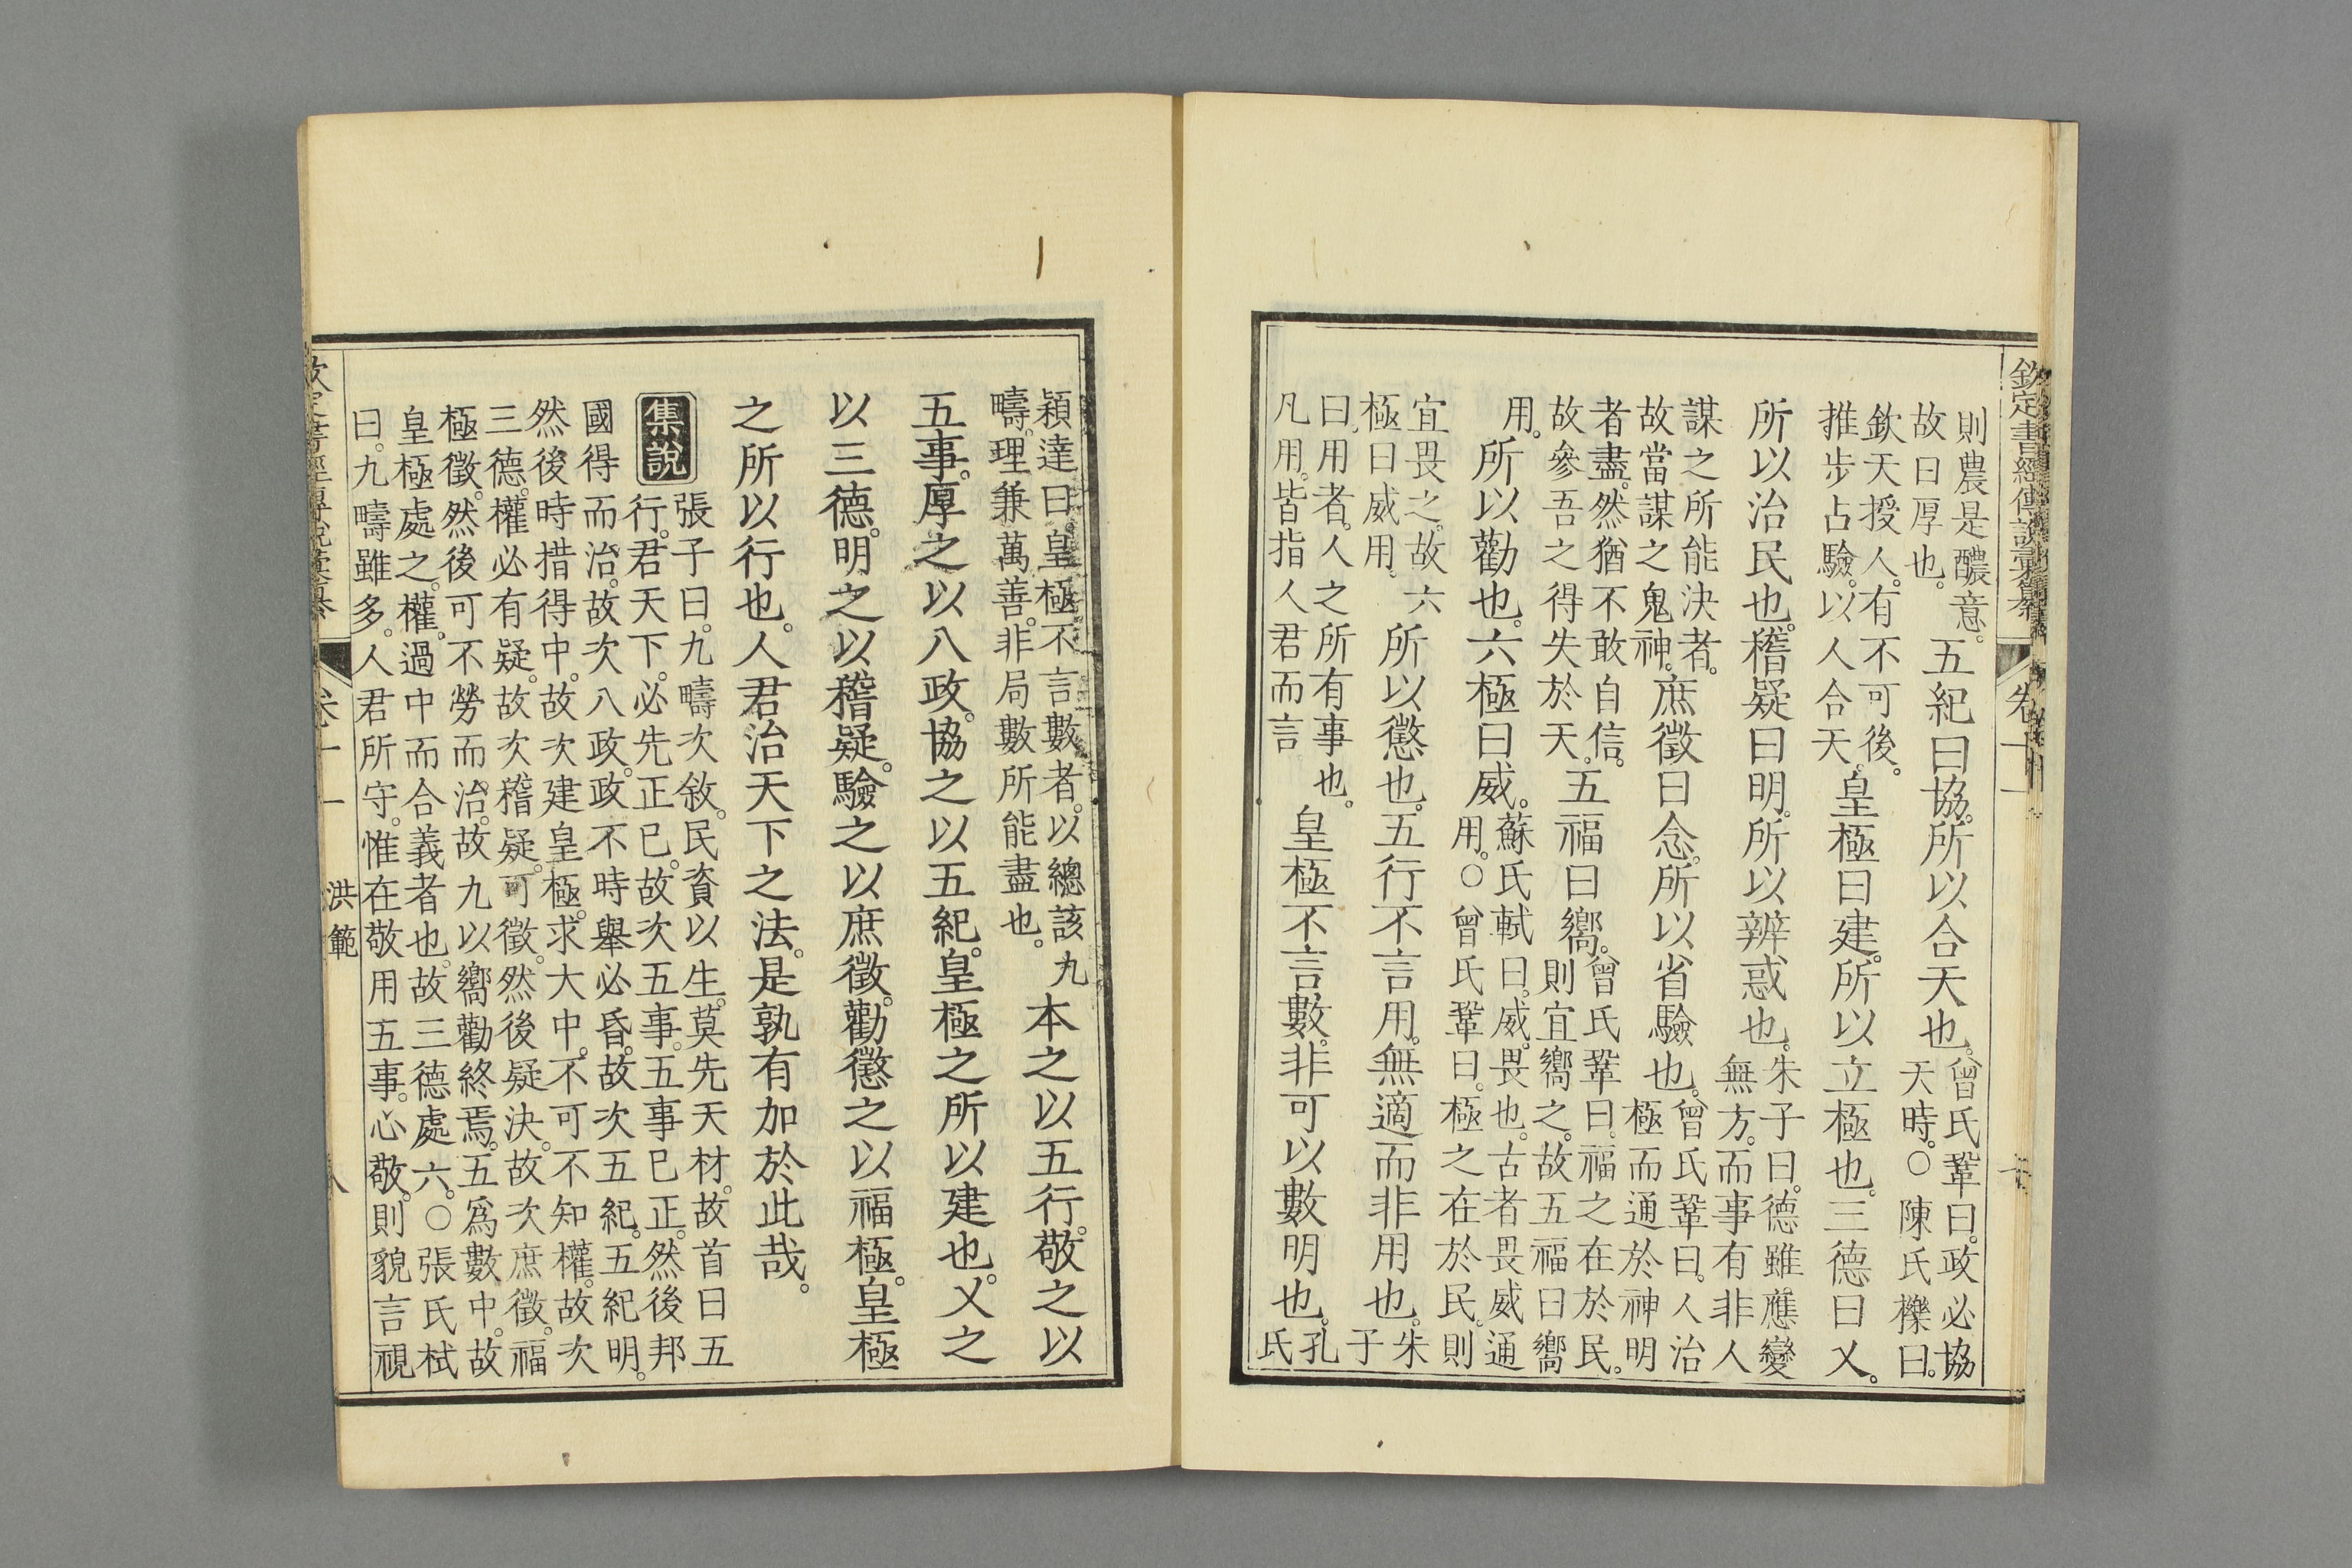 欽定書經傳說彙纂 卷十一
則農是醲意。故曰厚也。五紀曰協。所以合天也。曾氏鞏曰。政必協天時。○陳氏櫟曰。
欽天授人。有不可後。推步占驗。以人合天。皇極曰建。所以立極也。三德曰乂。
所以治民也。稽疑曰明。所以辨惑也。朱子曰。德雖應變無方。而事有非人
謀之所能決者。故當謀之鬼神。庶徵曰念。所以省驗也。曾氏鞏曰。人治極而通於神明
者盡。然猶不敢自信。故參吾之得失於天。五福曰嚮。曾氏鞏曰。福之在於民。則宜嚮之。故五福曰嚮
用。所以勸也。六極曰威。蘇氏軾曰。威。畏也。古者畏威通用。○曾氏鞏曰。極之在於民。則
宜畏之。故六極曰威用。所以懲也。五行不言用。無適而非用也。朱子
曰。用者。人之所有事也。凡用。皆指人君而言。皇極不言數。非可以數明也。孔氏
穎達曰。皇極不言數者。以總該九疇。理兼萬善。非局數所能盡也。本之以五行。敬之以
五事。厚之以八政。協之以五紀。皇極之所以建也。乂之
以三德。明之以稽疑。驗之以庶徵。勸懲之以福極。皇極
之所以行也。人君治天下之法。是孰有加於此哉。
集說 張子曰。九疇次敘。民資以生。莫先天材。故首曰五
行。君天下。必先正已。故次五事。五事已正。然後邦
國得而治。故次八政。政不時舉必昏。故次五紀。五紀明。
然後時措得中。故次建皇極。求大中。不可不知權。故次
三德。權必有疑。故次稽疑。可徵。然後疑決。故次庶徵。福
極徵。然後可不勞而治。故九以嚮勸終焉。五爲數中。故
皇極處之。權。過中而合義者也。故三德處六。○張氏栻
曰。九疇雖多。人君所守。惟在敬用五事。心敬。則貌言視
欽定書經傳說彙纂 卷十一 洪範 八